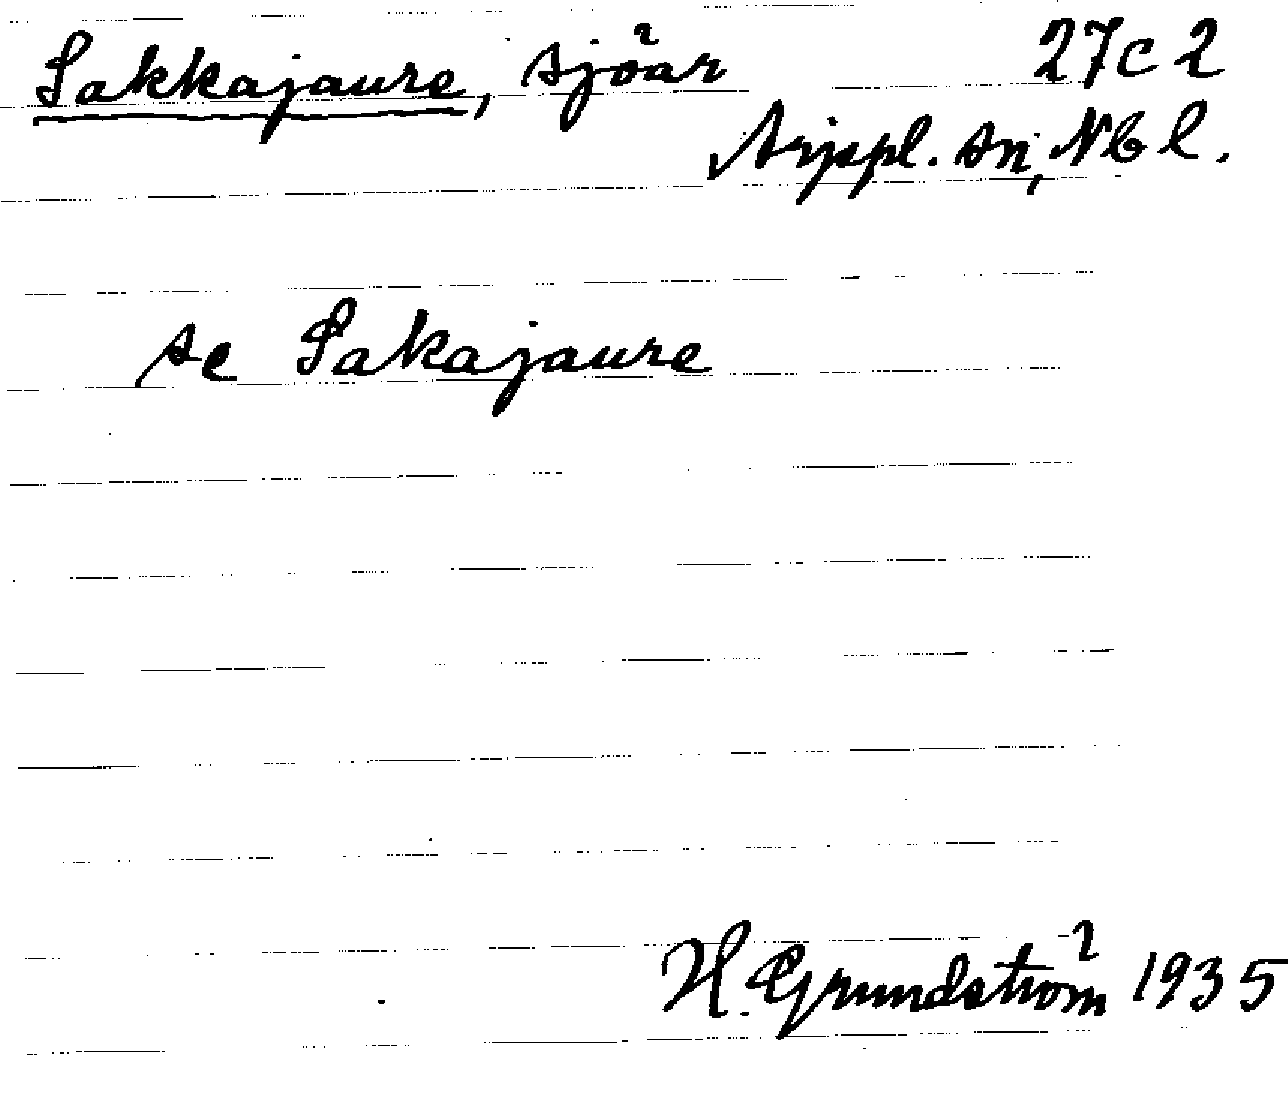 Sakkajaure, sjöar 27c2
Arjepl. sn, Nb l.
se Sakajaure
H. Grundström 1935